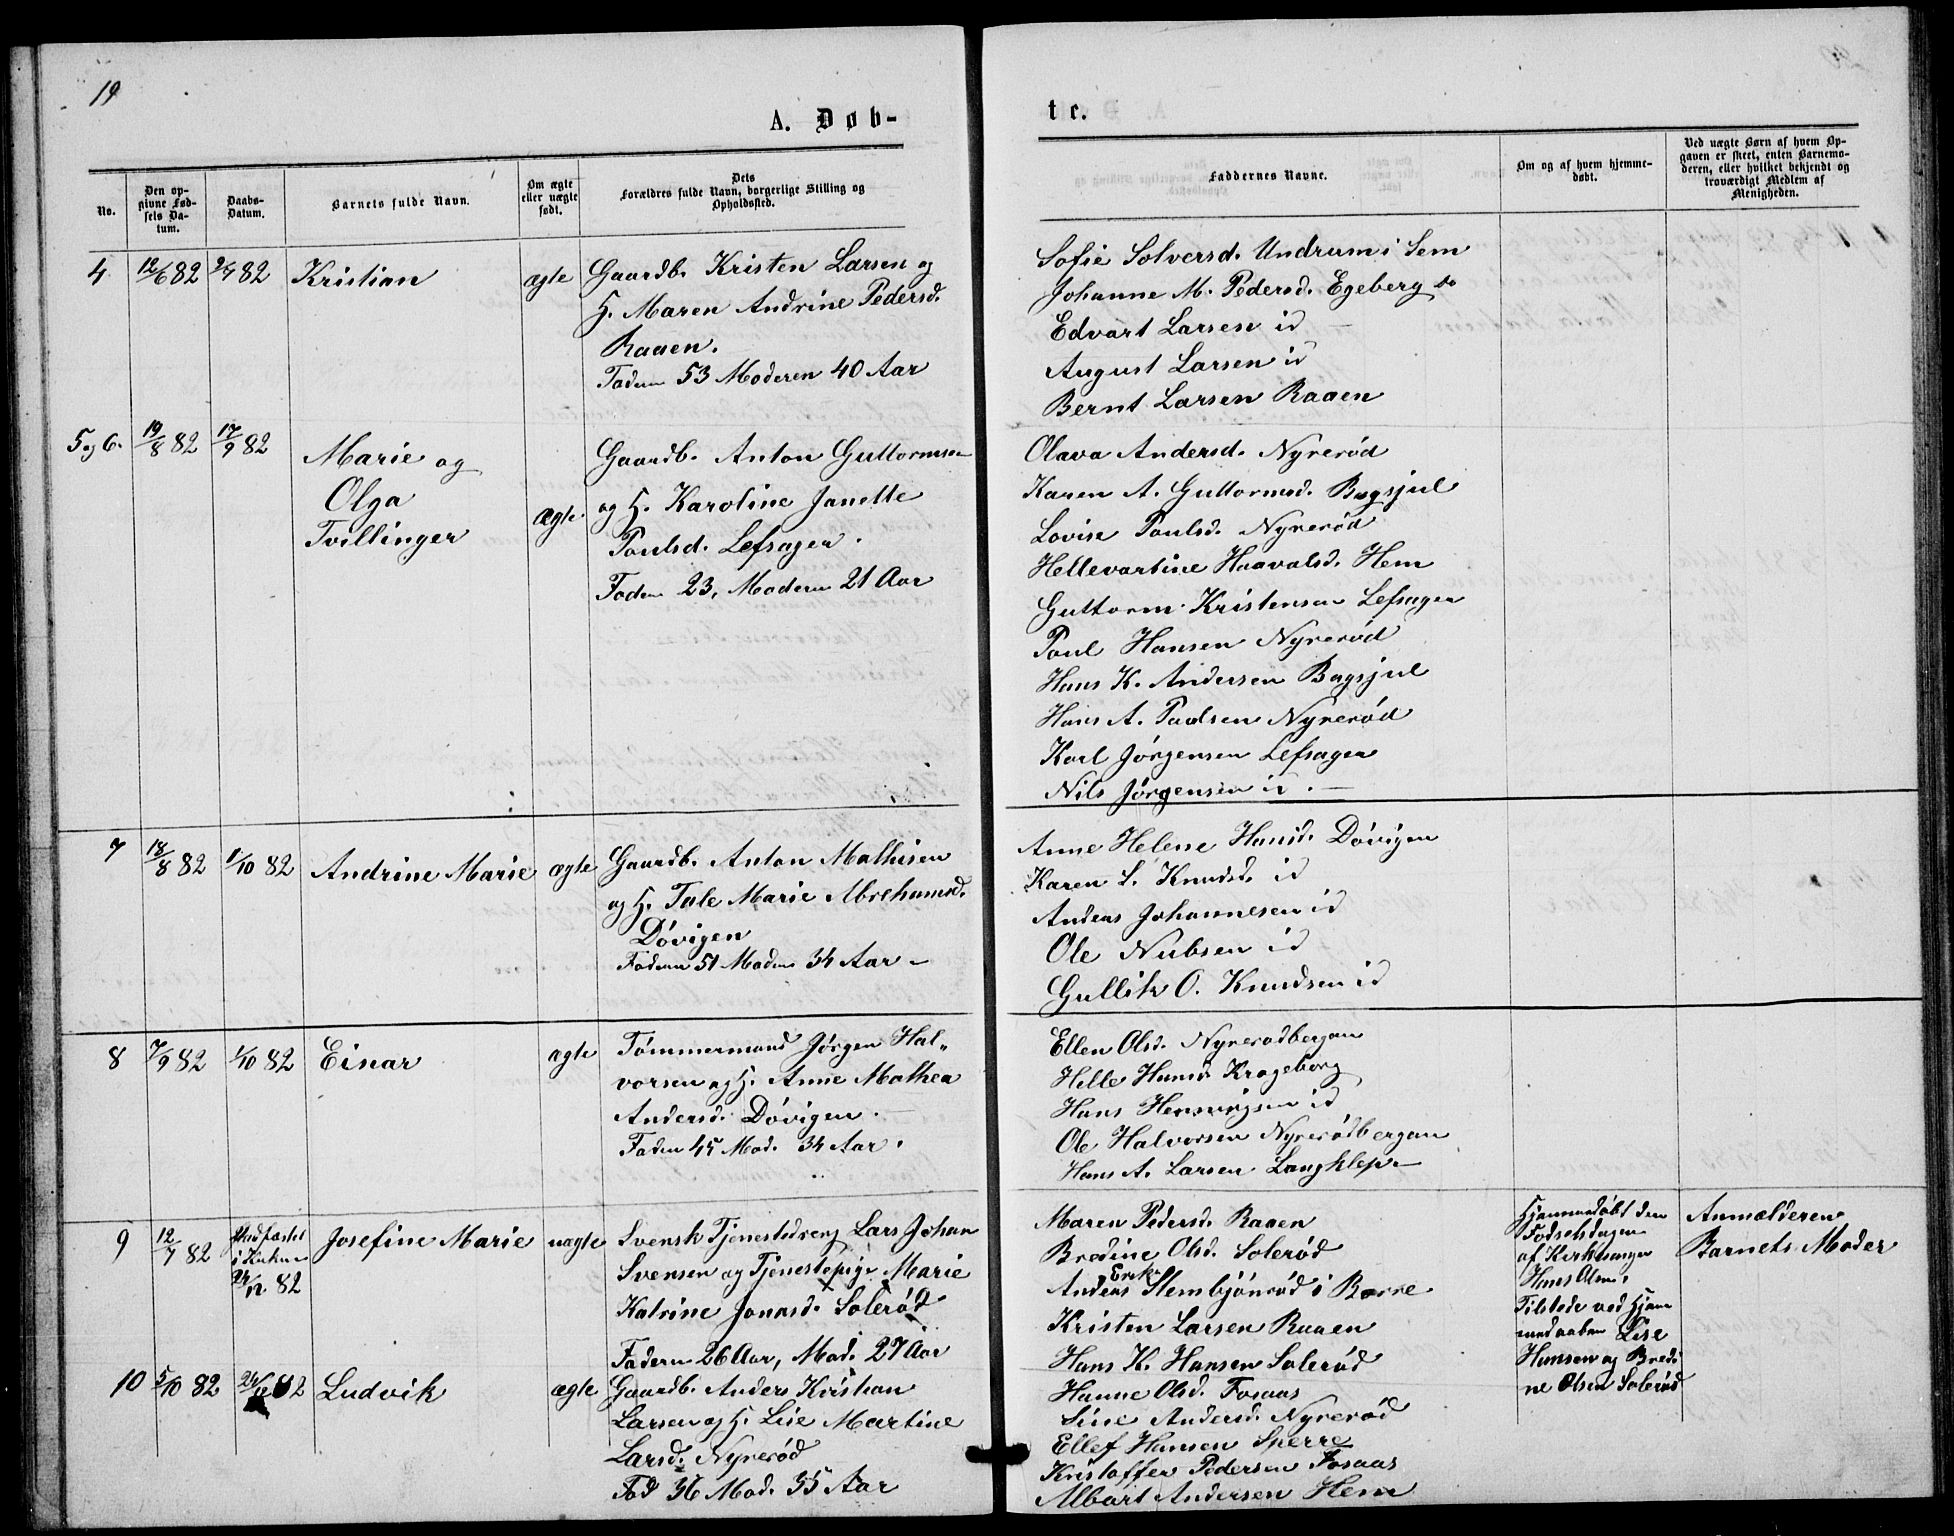 19
A. Døb-
No.
Den op-
givne Fød-
sels Da-
tum.
Daabs-
Datum.
Barnets fulde Navn.
Om ægte
eller uægte
født.
Dets
Forældres fulde Navn, borgerlige Stilling og
Opholdssted.
4. 12/6 82 82 Kristian ægte Gaardb. Kristen Larsen og
H. Maren Andrine Pedersd.
Raaen.
Faderen 53 Moderen 40 Aar
5 og 6. 19/8 82 17/9 82 Marie og
Olga
Tvillinger
ægte.
Gaardb. Anton Guttormsen
og H. Karoline Janette
Poulsd. Lefsager.
Faderen 23, Moderen 21 Aar
7 18/8 82 1/10 82 Andrine Marie ægte Gaardb. Anton Mathisen
og H. Tale Marie Abrehamsd.
Døvigen
Faderen 51 Moderen 34 Aar -
8 7/9 82 1/10 82 Einar ægte Tømmermand Jørgen Hal-
vorsen og H. Anne Mathea
Andersd. Døvigen.
Faderen 45 Mod. 34 Aar.
9 12/7 82 Stadfæstet
i Kirken
24/12 82
Josefine Marie uægte Svensk Tjenestedreng Lars Johan
Svensen og Tjenestepige Marie
Katrine Jonasd. Solerød
Faderen 26 Aar, Mod. 27 Aar
10 5/10 82 Ludvik ægte Gaardb. Anders Kristian
Larsen og H. Lise Martine
Larsd. Nyrerød
Fad 36 Mod. 35 Aar
t e.
Faddernes Navne.
Om og af hvem hjemme-
døbt.
Ved uægte Børn af hvem Op-
gaven er skeet, enten Barnemo-
deren, eller hvilket bekjendt og
troværdigt Medlem af
Menigheden.
Sofie Solversd. Undrum i Sem
Johanne M. Pedersd. Egeberg
Edvart Larsen id
August Larsen id
Bernt Larsen Raaen
Olava Andersd. Nyrerød
Karen A. Guttormsd. Bøgsjul
Lovise Poulsd. Nyrerød
Hellevartine Haavalsd. Hem
Guttorm Kristensen Lefsager
Poul Hansen Nyrerød
Hans K. Andersen Bøgsjul
Hans A. Paulsen Nyrerød
Karl Jørgensen Lefsager
Nils Jørgensen id. -
Anne Helene Hansd. Døvigen
Karen L. Knudsd. id
Anders Johannesen id
Ole Nubsen id
Gullik O. Knudsen id
Ellen Olsd. Nyrerødbergan
Helle Hansd. Krageborg
Hans Henningsen id
Ole Halvorsen Nyrerødbergan
Hans A. Larsen Langklep -
Maren Pedersd. Raaen
Bredine Olsd. Solerød
Anders Erik. Stembjønrød i Borre
Kristen Larsen Raaen
Hans K. Hansen Solerød
Hjemmedøbt den
Fødselsdagen
af Kirkesanger
Hans Olsen.
Tilstede ved Hjem
medaaben Lise
Hansen og Bredi
ne Olsen Solerød
Anmelderen
Barnets Moder
Hanne Olsd. Fosaas
Andersd. Nyrerød
Ellef Hansen Sperre
Kristoffer Pedersen Fosaas
Albart Andersen Hem